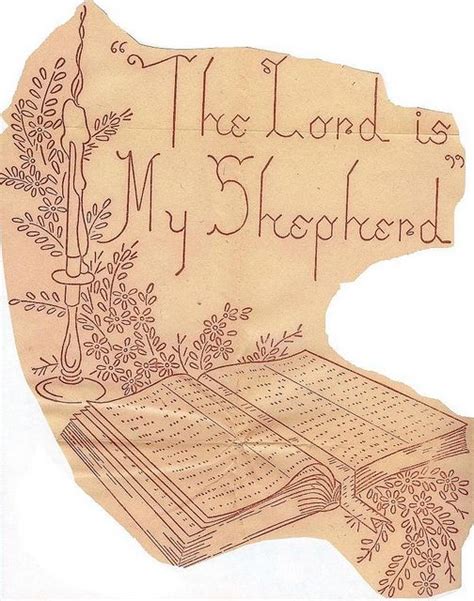 “The Lord is
My Shepherd”